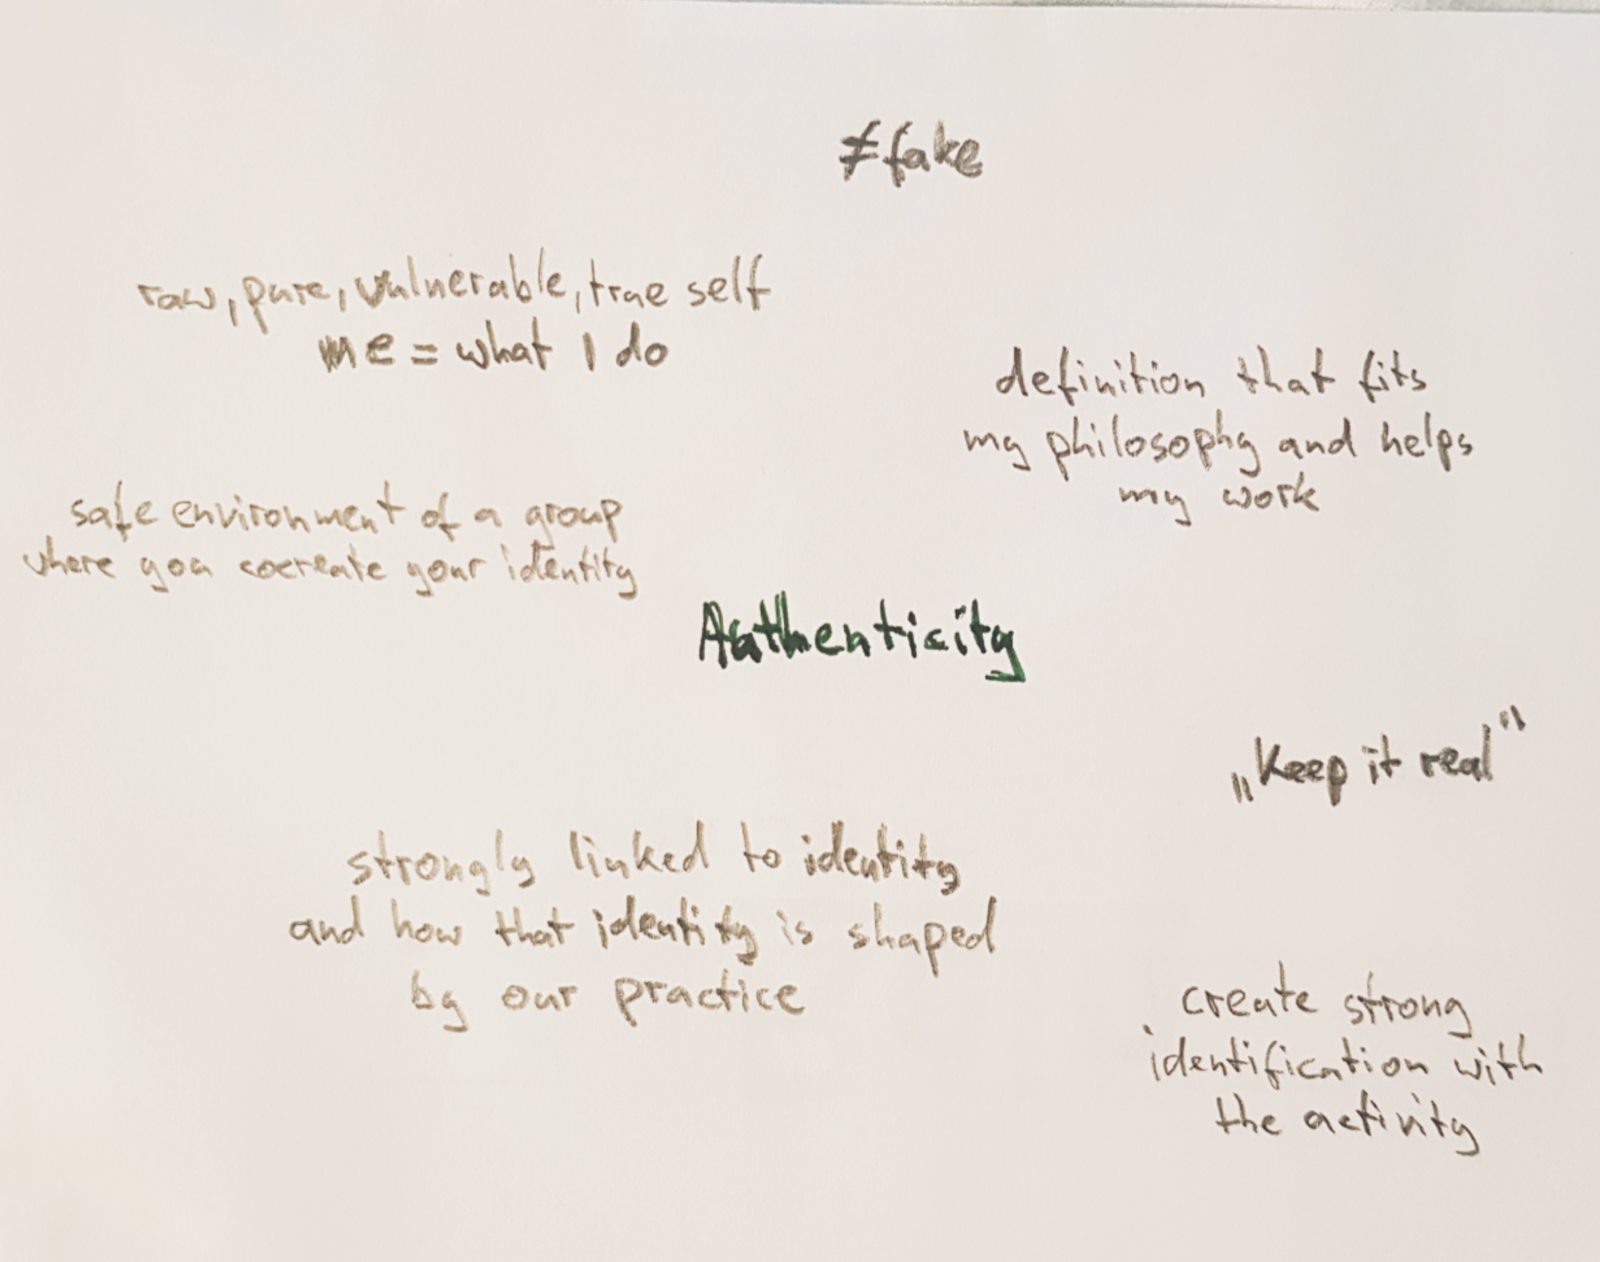 ≠fake
raw, pure, vulnerable, true self
me = what I do
definition that fits
my philosophy and helps
my work
safe environment of a group
where you cocreate your identity
Authenticity
„Keep it real"
strongly linked to identity
and how that identity is shaped
by our practice
create strong
identification with
the activity